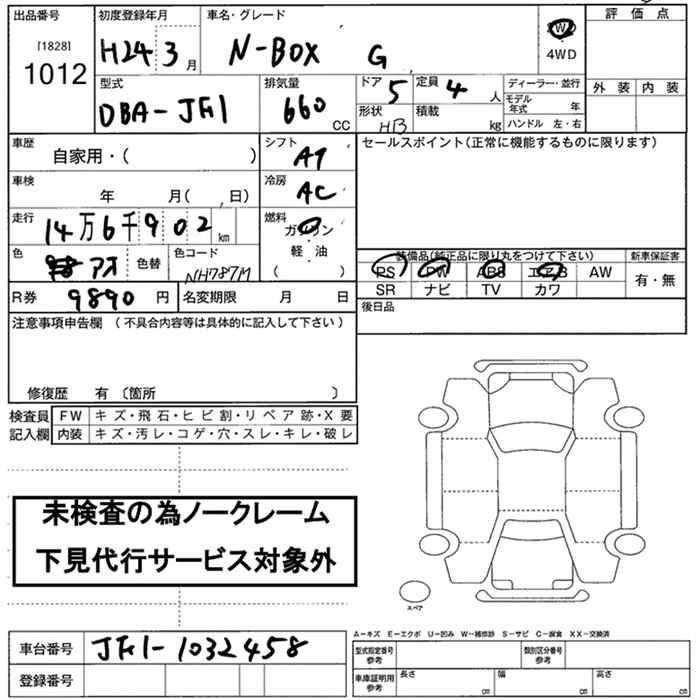 出品番号 初度登録年月 車名・グレード 2WD 評価点
[1828] 1012 H24 3月 N-BOX G 4WD
外装 内装
型式 排気量 ドア 5 定員 4人 ディーラー・並行
DBA-JF1 660 CC 形状 HB 積載 kg モデル年式 年
ハンドル 左・右
車歴 自家用・( ) シフト AT セールスポイント(正常に機能するものに限ります)
車検 年 月( 、日) 冷房 AC
走行 14万6千902 km 燃料 ガソリン
軽・油
( )
色 アオ 色替 色コード NH787M
装備品(純正品に限り丸をつけて下さい) 新車保証書
PS PW ABS エアB AW 有・無
SR ナビ TV カワ
R券 9890円 名変期限 月 日
後日品
注意事項申告欄 (不具合内容等は具体的に記入して下さい)
修復歴 有 〔箇所 〕
検査員 FW キズ・飛石・ヒビ割・リペア跡・X要
記入欄 内装 キズ・汚レ・コゲ・穴・スレ・キレ・破レ
未検査の為ノークレーム
下見代行サービス対象外
スペア
A-キズ E-エクボ U-凹み W-補修跡 S-サビ C-腐食 XX-交換済
車台番号 JF1-1032458
型式指定番号 参考 類別区分番号 参考
登録番号
車庫証明用 参考 長さ cm 幅 cm 高さ cm